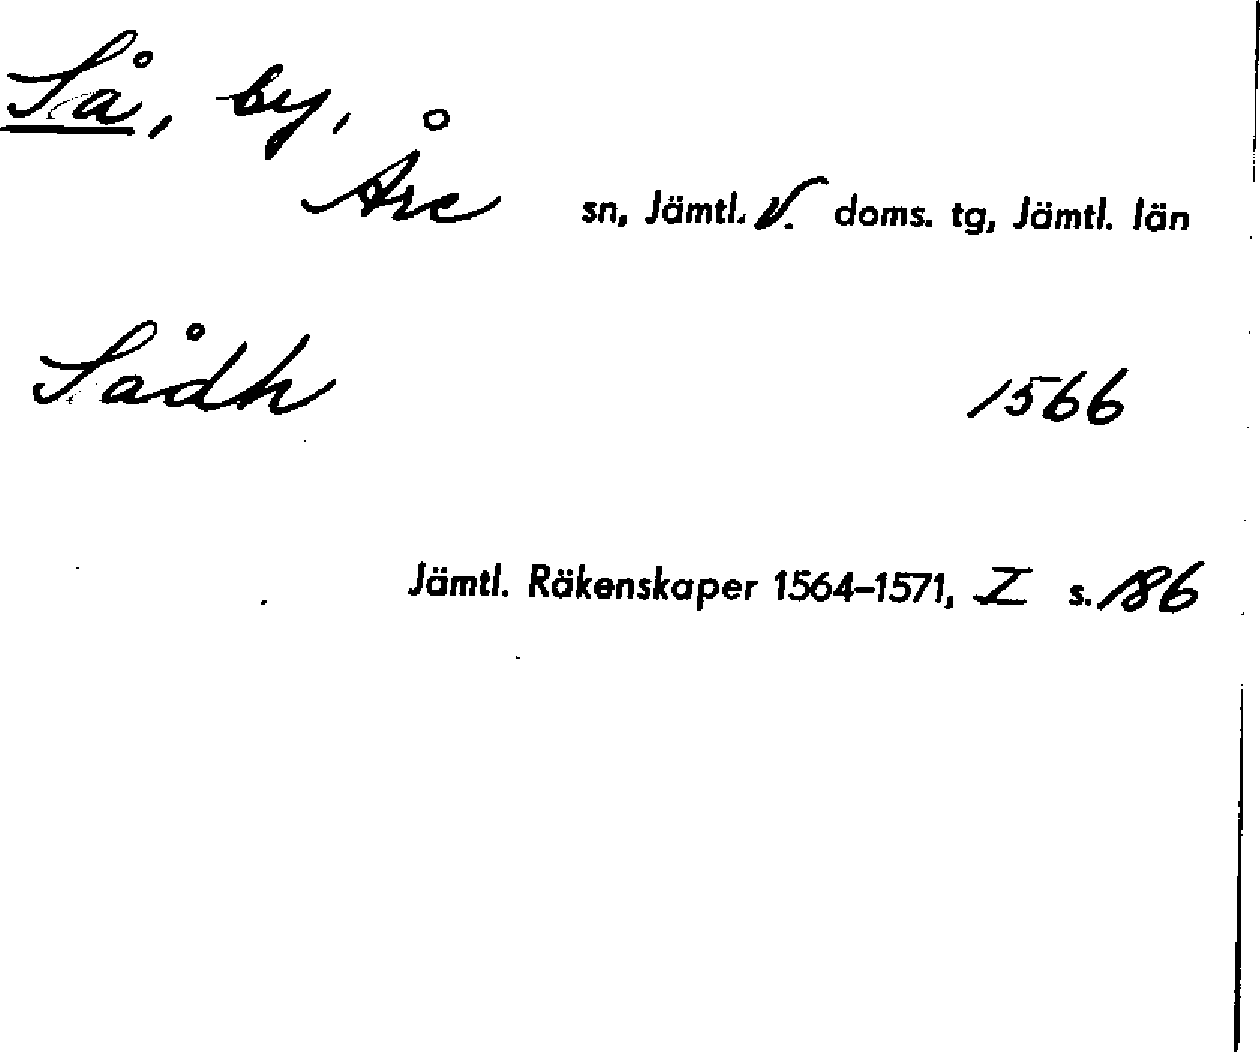 Så, by,
Åre sn, Jämtl. V. doms. tg, Jämtl. län
Sådh 1566
Jämtl. Räkenskaper 1564–1571, I s. 186